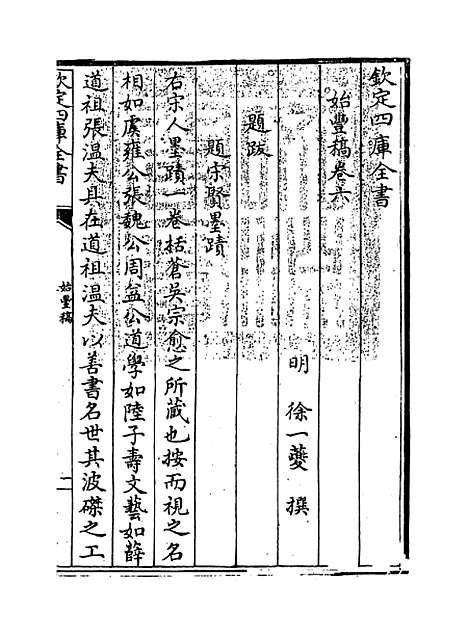 欽定四庫全書
始豐稿卷六
明 徐一夔 撰
題跋
題宋賢墨蹟
右宋人墨蹟一卷括蒼吳宗愈之所藏也按而視之名
相如虞雍公張魏公周益公道學如陸子壽文藝如薛
道祖張温夫具在道祖温夫以善書名世其波磔之工
欽定四庫全書
始豐稿